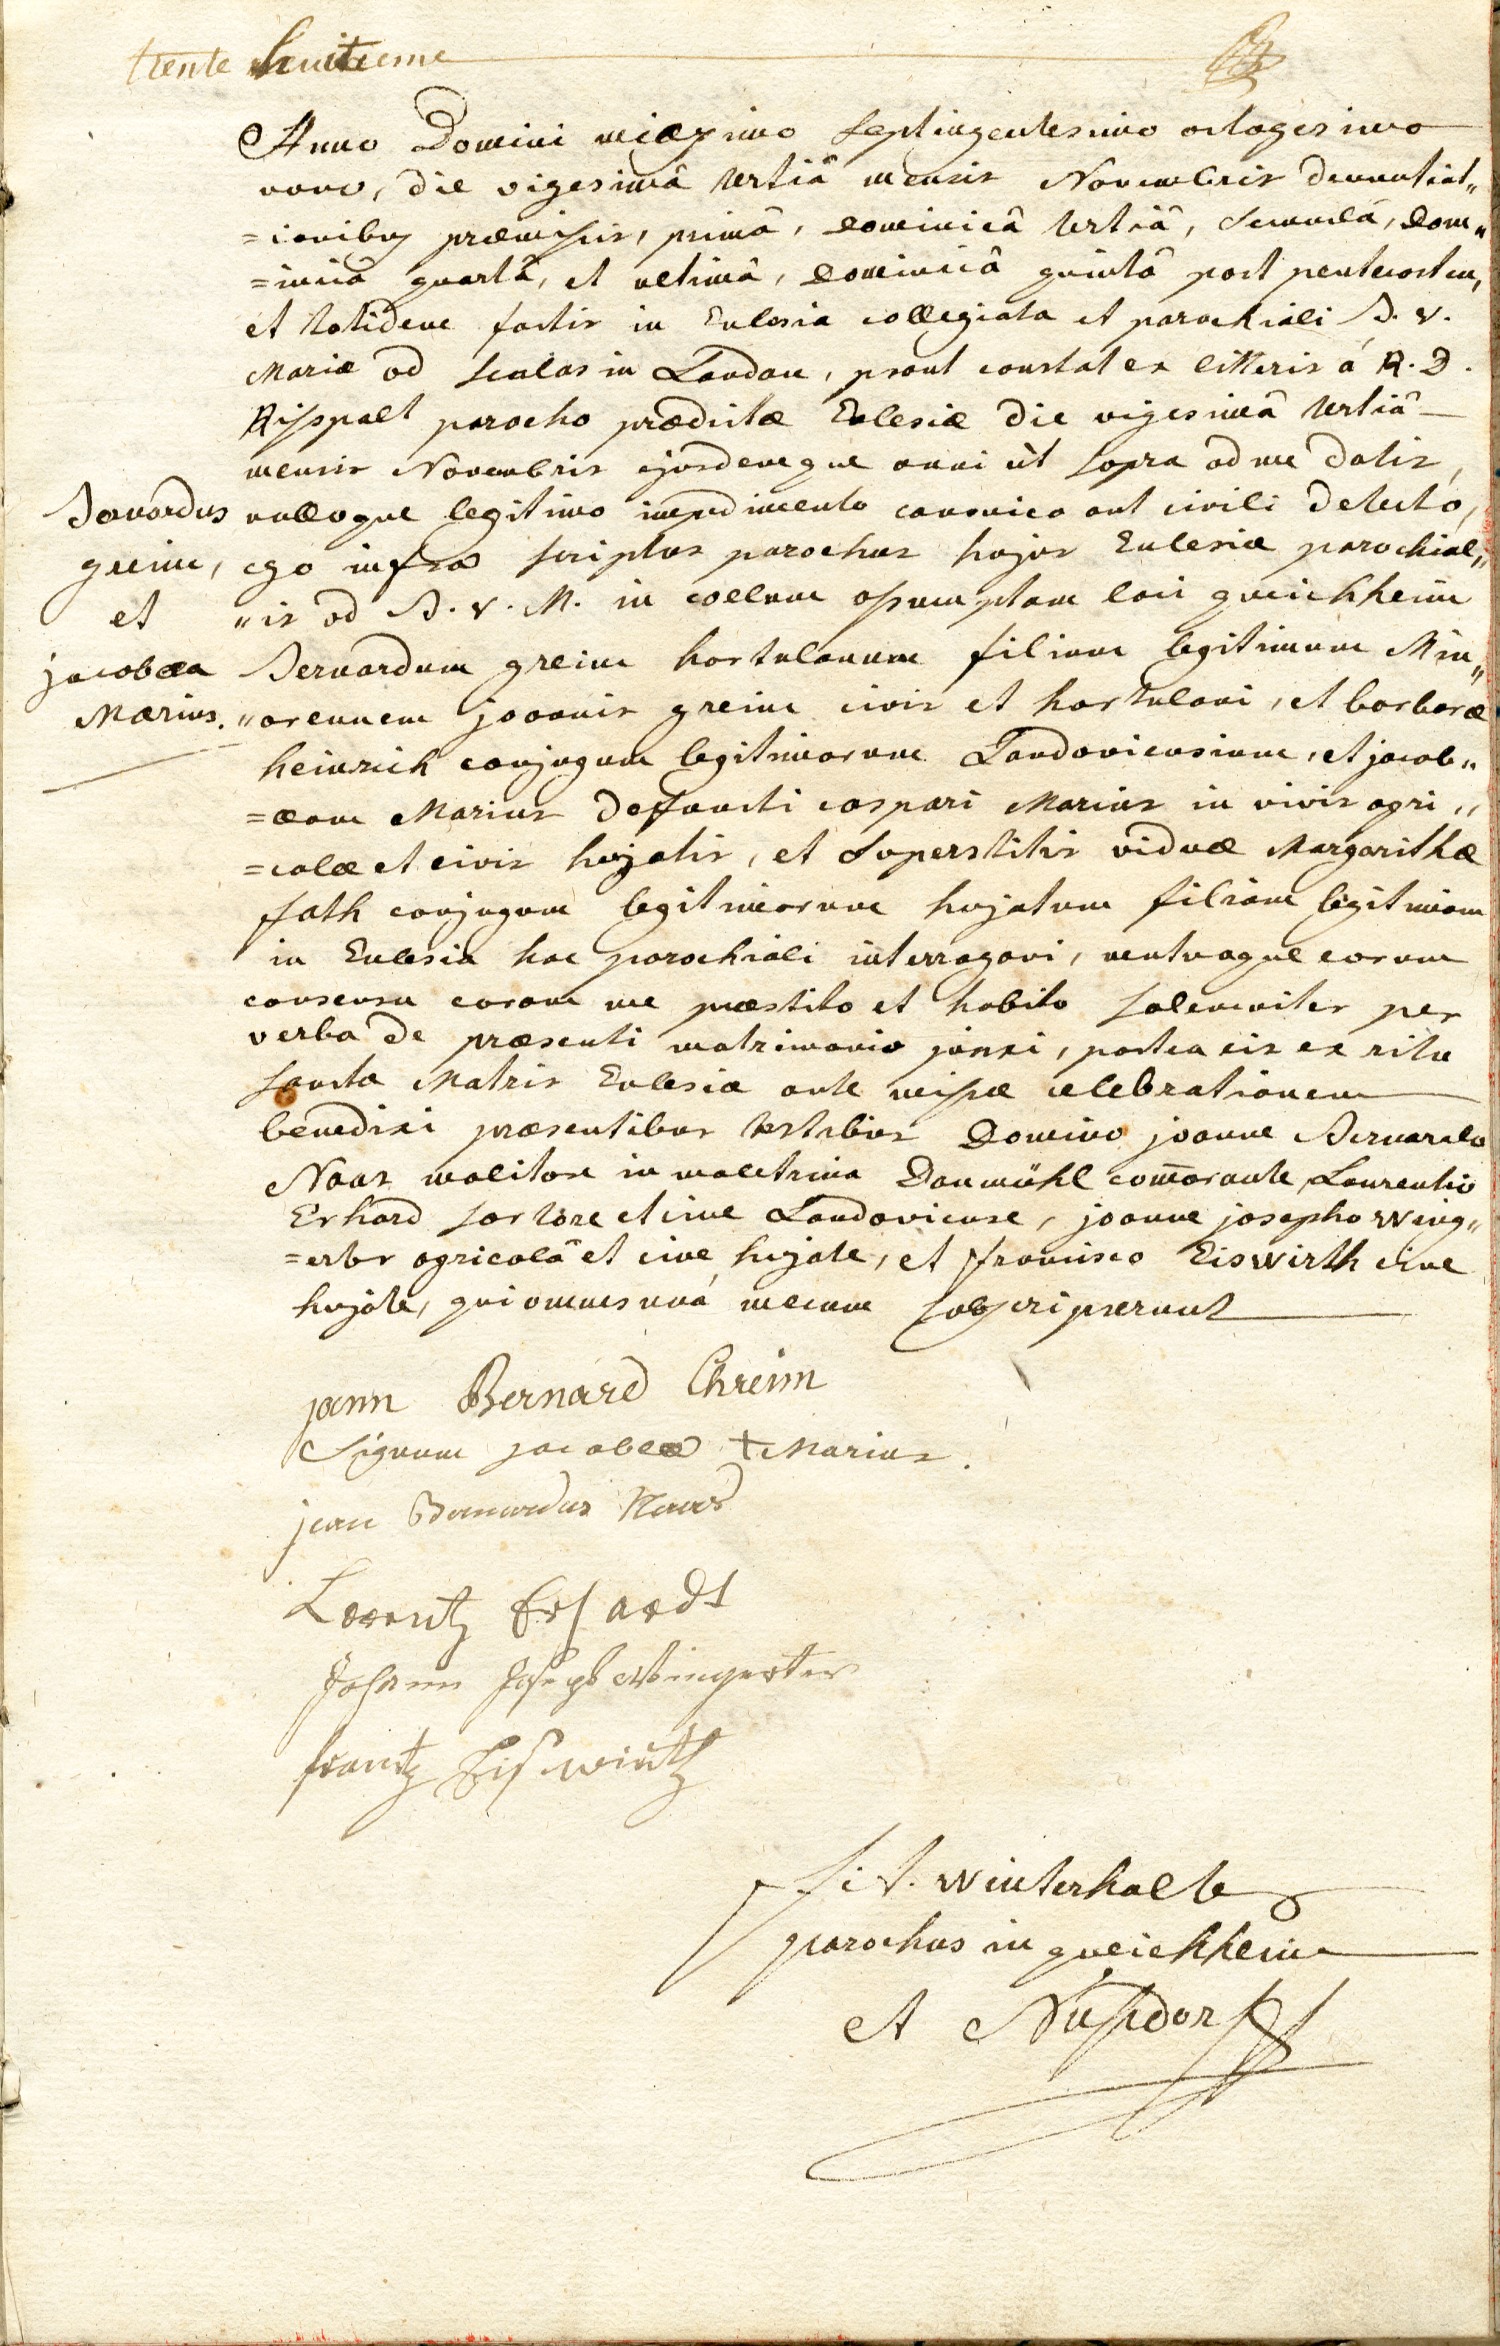 trente huitieme
Anno Domini millesimo septingentesimo octogesimo
nono, die vigesimâ tertiâ mensis Novembris denuntiat„
=ionibus præmissis, primâ, Dominicâ tertiâ, secundâ, Dom„
=inicâ quartâ, et ultimâ, Dominicâ quintâ post pentecosten,
et totidem factis in Eclesia collegiata et parochiali B. v.
Mariæ ad scalas in Landau, prout constat ex litteris á R. D.
Risspalt parocho prædictæ Eclesiæ die vigesimâ tertiâ
mensis Novembris ejusdemque anni ùt supra ad me datis,
nulloque legitimo impedimento canonico aut civili detecto,
ego infra scriptus parochus hujus Eclesiæ parochial„
„is ad B. v. M. in coelum assumptam loci queichheim
Bernardus
greim,
et
jacobæa
Marius.
Bernardum greim hortulanum filium legitimum Min„
„orennem joannis greim civis et hortulani, et barbaræ
heinrich conjugum legitimorum Landaviensium, et jacob„
=æam Marius defuncti caspari Marius in vivis agri„
=colæ et civis hujatis, et superstitis viduæ Margarithæ
fath conjugum legitimorum hujatum filiam legitimam
in Eclesia hac parochiali interrogavi, mutuoque eorum
consensu coram me præstito et habito solemniter per
verba de præsenti matrimonio junxi, postea eis ex ritu
sanctæ Matris Eclesiæ ante missæ celebrationem
benedixi præsentibus testibus Domino joanne Bernardo
Naas molitore in moletrina Danmühl com̄orante, Laurentio
Erhard sartore et cive Landaviense, joanne josepho Wing„
=erter agricolâ et cive hujate, et francisco Eiswirth cive
hujate, qui omnes unâ mecum subscripserunt
jann Bernard Chreim
Signum jacobeæ + Marius.
jean Bernardus Naas
Lorentz Erhardt
Johann Joseph Wingerter
frantz Eiswirth
F. J. Winterhalter
parochus in queichheim
et Nussdorf